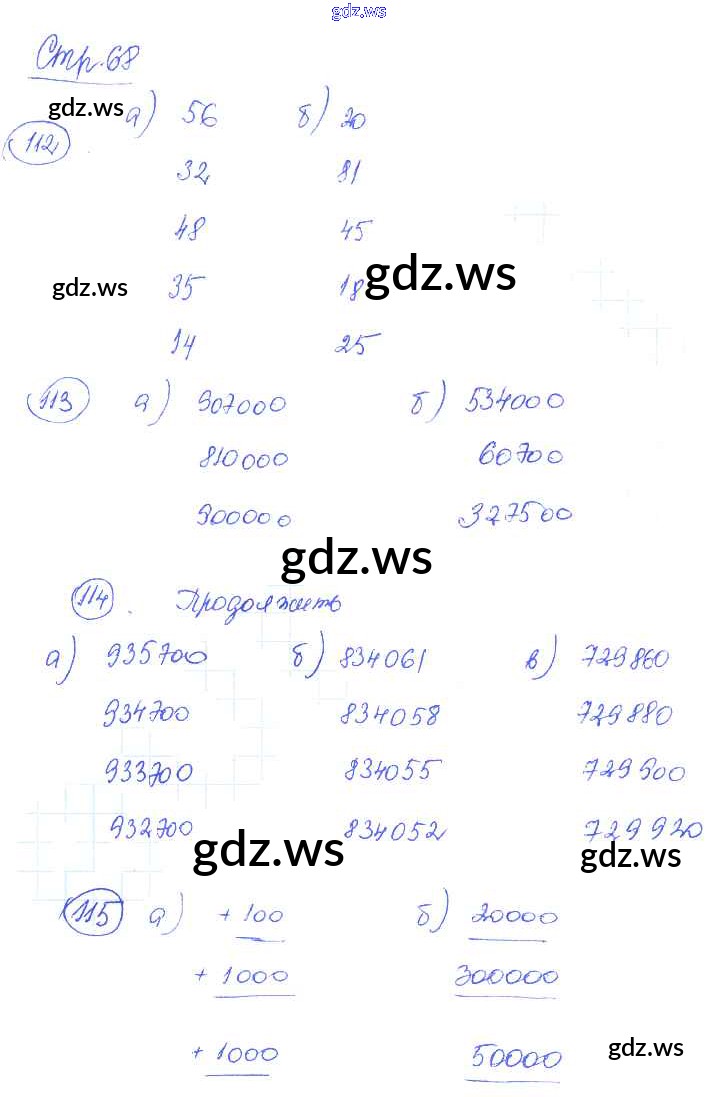 gdz.ws
Стр. 68
gdz.ws
112 а) 56 б) 20
32 81
48 45
gdz.ws
gdz.ws 35 18
14 25
113 а) 907000 б) 534000
810000 60700
900000 327500
gdz.ws
114. Продолжить
а) 935700 б) 834061 в) 729860
934700 834058 729880
933700 834055 729900
932700 834052 729920
gdz.ws gdz.ws
115 а) + 100 б) 20000
+ 1000 300000
+ 1000 50000
gdz.ws